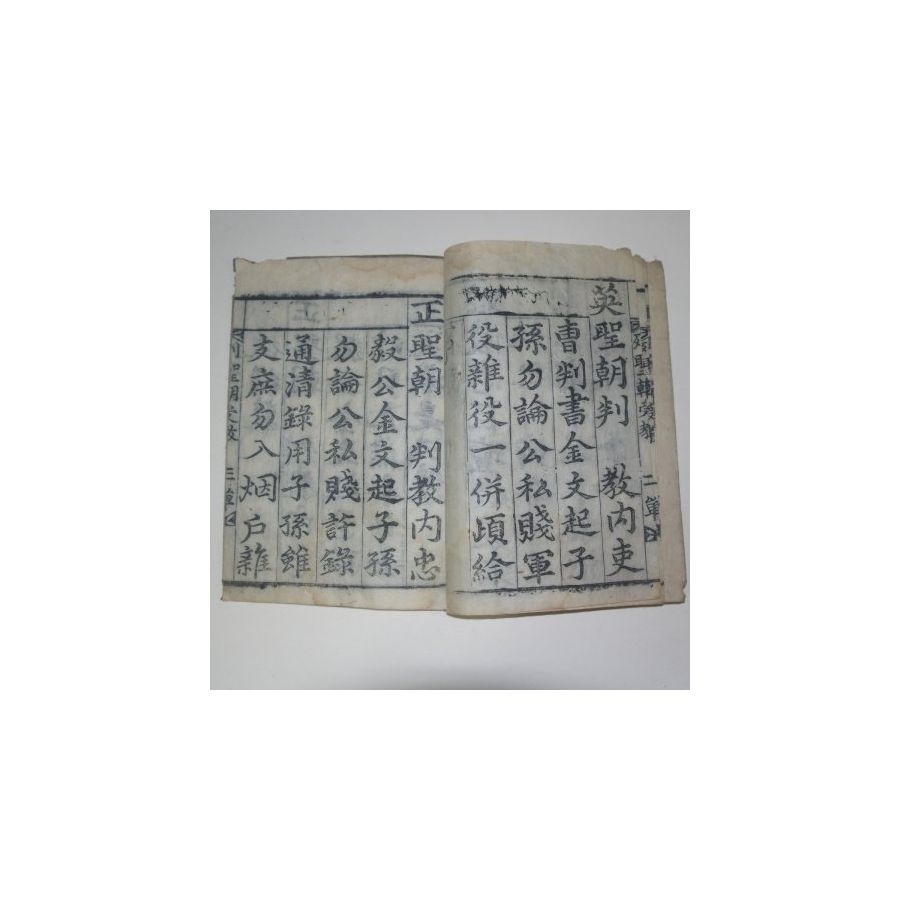 英聖朝判 教内吏
曹判書金文起子
孫勿論公私賤軍
役雜役一併頉給
正聖朝 判教内忠
毅公金文起子孫
勿論公私賤許錄
通清錄用子孫雖
支庶勿入烟戶雜